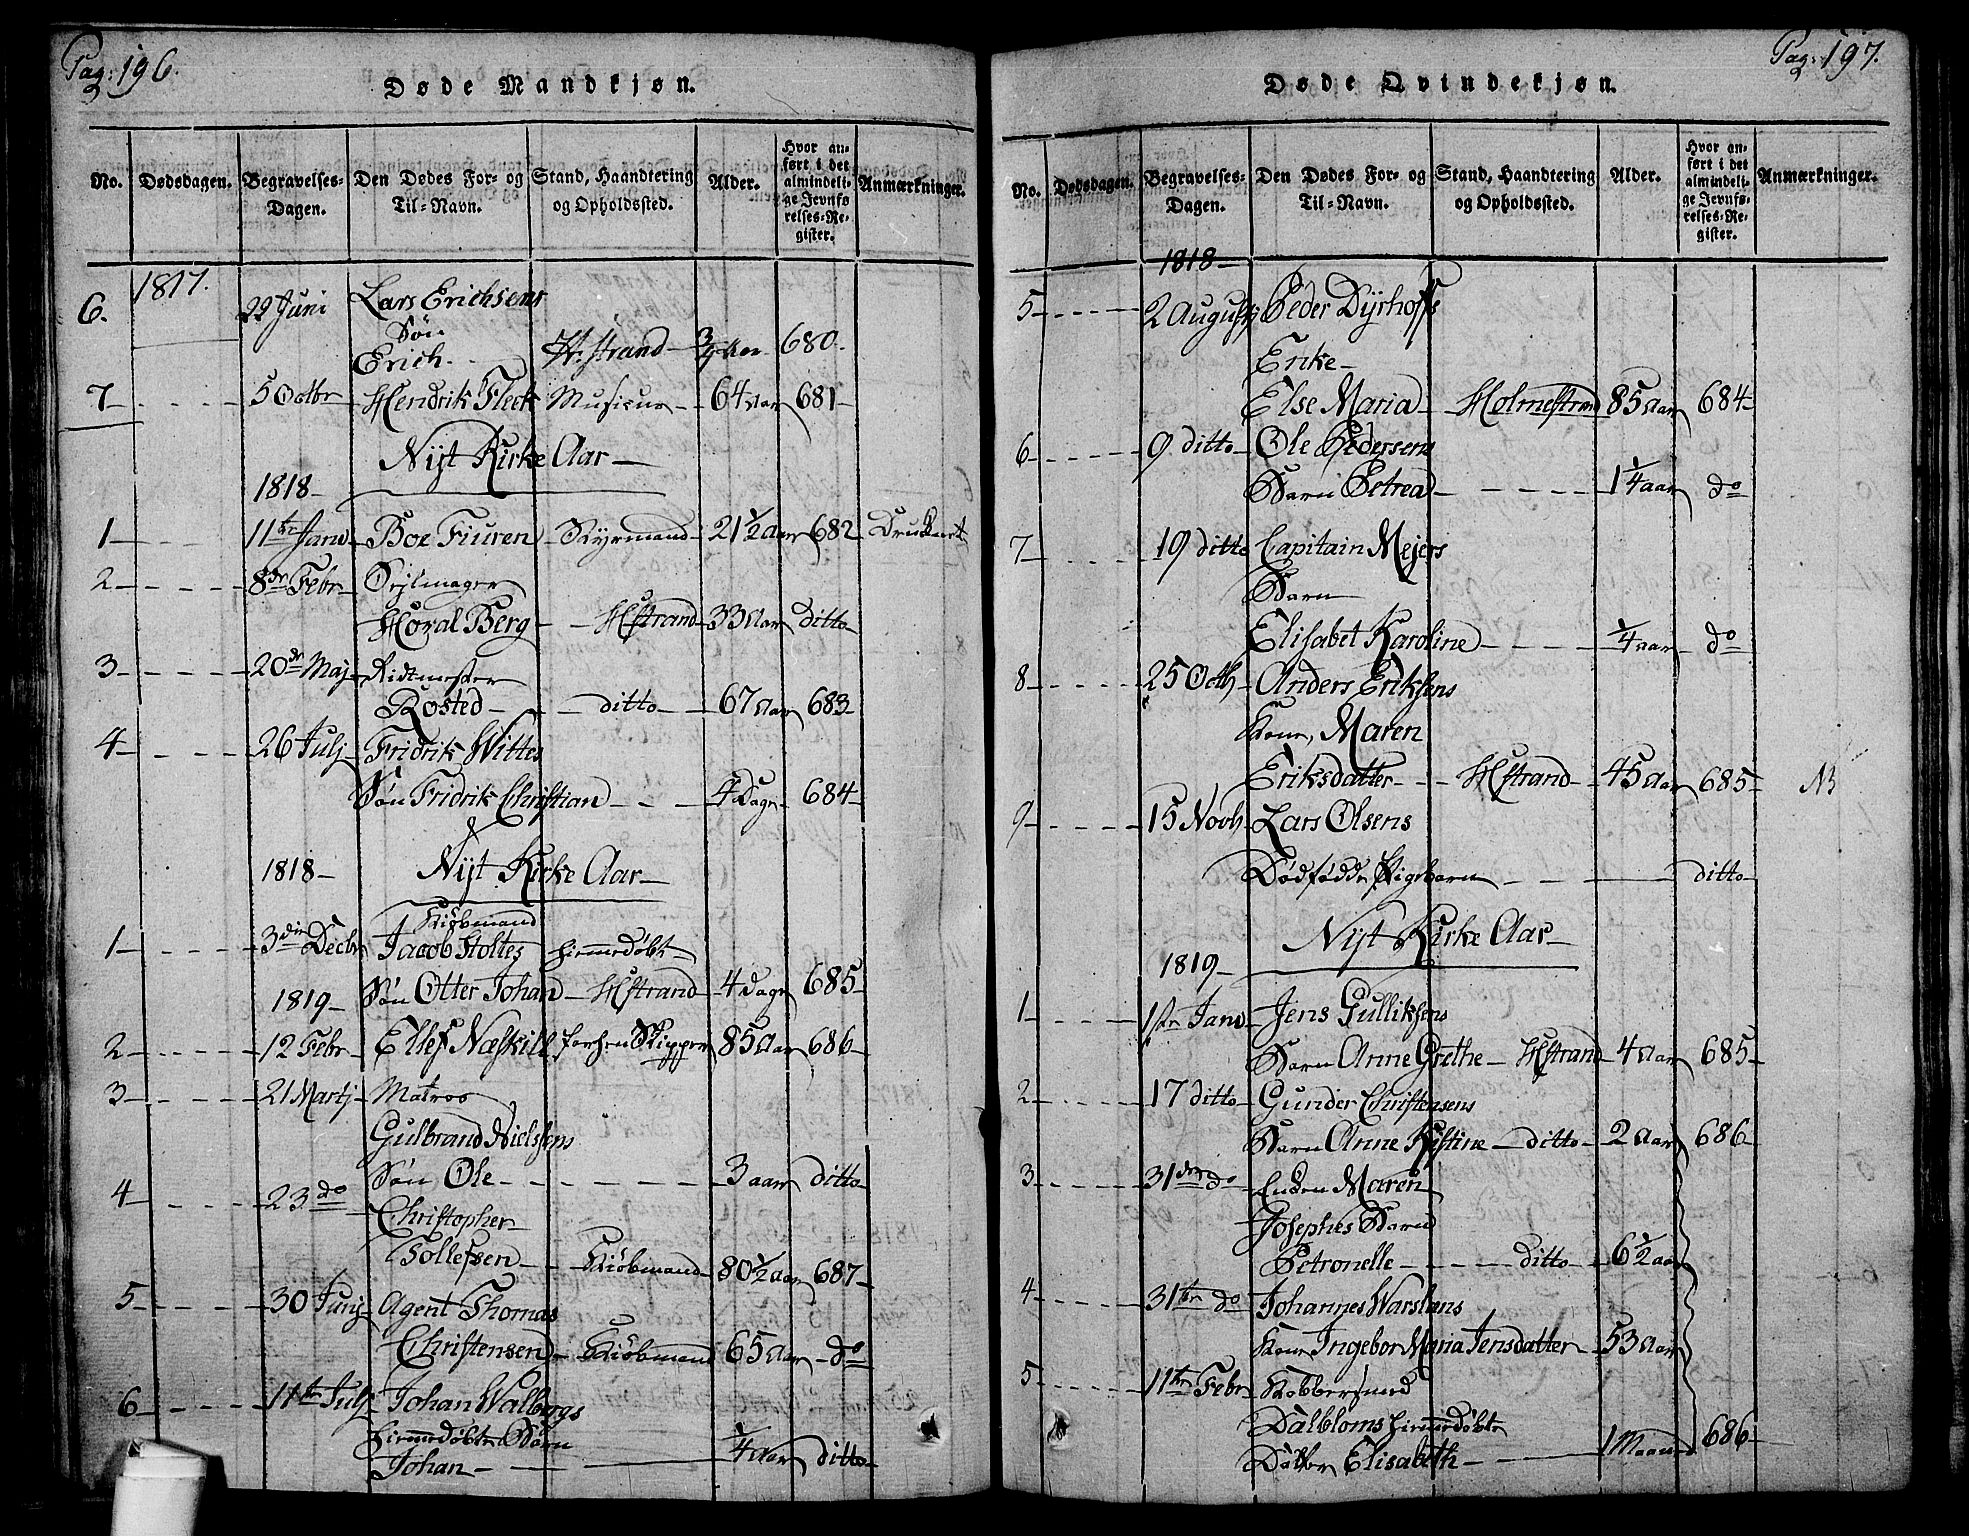 Pag: 196.
Døde Mandkjøn.
No. Dødsdagen. Begravelses-Dagen. Den Dødes For- og Til-Navn. Stand, Haandtering og Opholdssted. Alder. Hvor anført i det almindelige Jevnførelses-Register. Anmærkninger.
1817.
6. 22 Juni Lars Erichsens
Søn
Erich. Hr: strand 3/4 Aar 680.
7 5 Octbr Hendrik Fleck Musicus 64 Aar 681
Nyt Kirke Aar
1818
1 11te Janv Boe Fiuren Styrmand 21 1/2 Aar 682 Druknet
2 8de Febr Sejlmager
Horal Berg Hstrand 33 Aar ditto
3 20de Maj Ridtmester
Rosted ditto 67 Aar 683
4 26 Julj Fridrik Wittes
Søn Fridrik Christian 4 Dage 684
1818 Nyt Kirke Aar
Kiøbmand
1 3die Decbr Jacob Stoltes hiemmedøbt
1819 Søn Otter Johan Hstrand 4 Dage 685
2 12 Febr Ellef Næskill Skipper 85 Aar 686
3 21 Martj Matros
Gulbrand Nielsens
Søn Ole 3 aar ditto
4 23 do Christopher
Tollefsen Kiøbmand 80 1/2 Aar 687
5 30 Junj Agent Thomas
Christensen Kiøbmand 65 Aar do
6 11te Julj Johan Walbergs
hiemmedøbte Barn
Johan 1/4 Aar ditto
Pag: 197.
Døde Qvindekjøn.
No. Dødsdagen. Begravelses-Dagen. Den Dødes For- og Til-Navn. Stand, Haandtering og Opholdssted. Alder. Hvor anført i det almindelige Jevnførelses-Register. Anmærkninger.
1818
5 2 August Peder Dyrhoffs
Enke
Else Maria Holmestrand 85 Aar 684
6 9 ditto Ole Pedersens
Barn Petrea 1 1/4 aar do
7 19 ditto Capitain Mejers
Barn
Elisabet Karoline 1/4 aar do
8 25 Octb Anders Eriksens
Kone, Maren
Eriksdatter Hstrand 45 Aar 685 NB
9 15 Novb Lars Olsens
Dødfødde Pigebarn ditto
Nyt Kirke Aar
1819
1 1ste Janv Jens Gulliksens
Barn Anne Grethe Hstrand 4 Aar 685
2 17 ditto Gunder Christensens
Barn Anne Kistine ditto 2 Aar 686
3 31 do Enken Maren
Josephes Barn
Petronelle ditto 6 1/2 aar
4 31te do Johannes Warslæns
Kone Ingebor Maria Jensdatter 53 Aar
5 11te Febr Kobbersmed
Dalbloms hiemmedøbte
Datter Elisabeth 1 Maaned 686